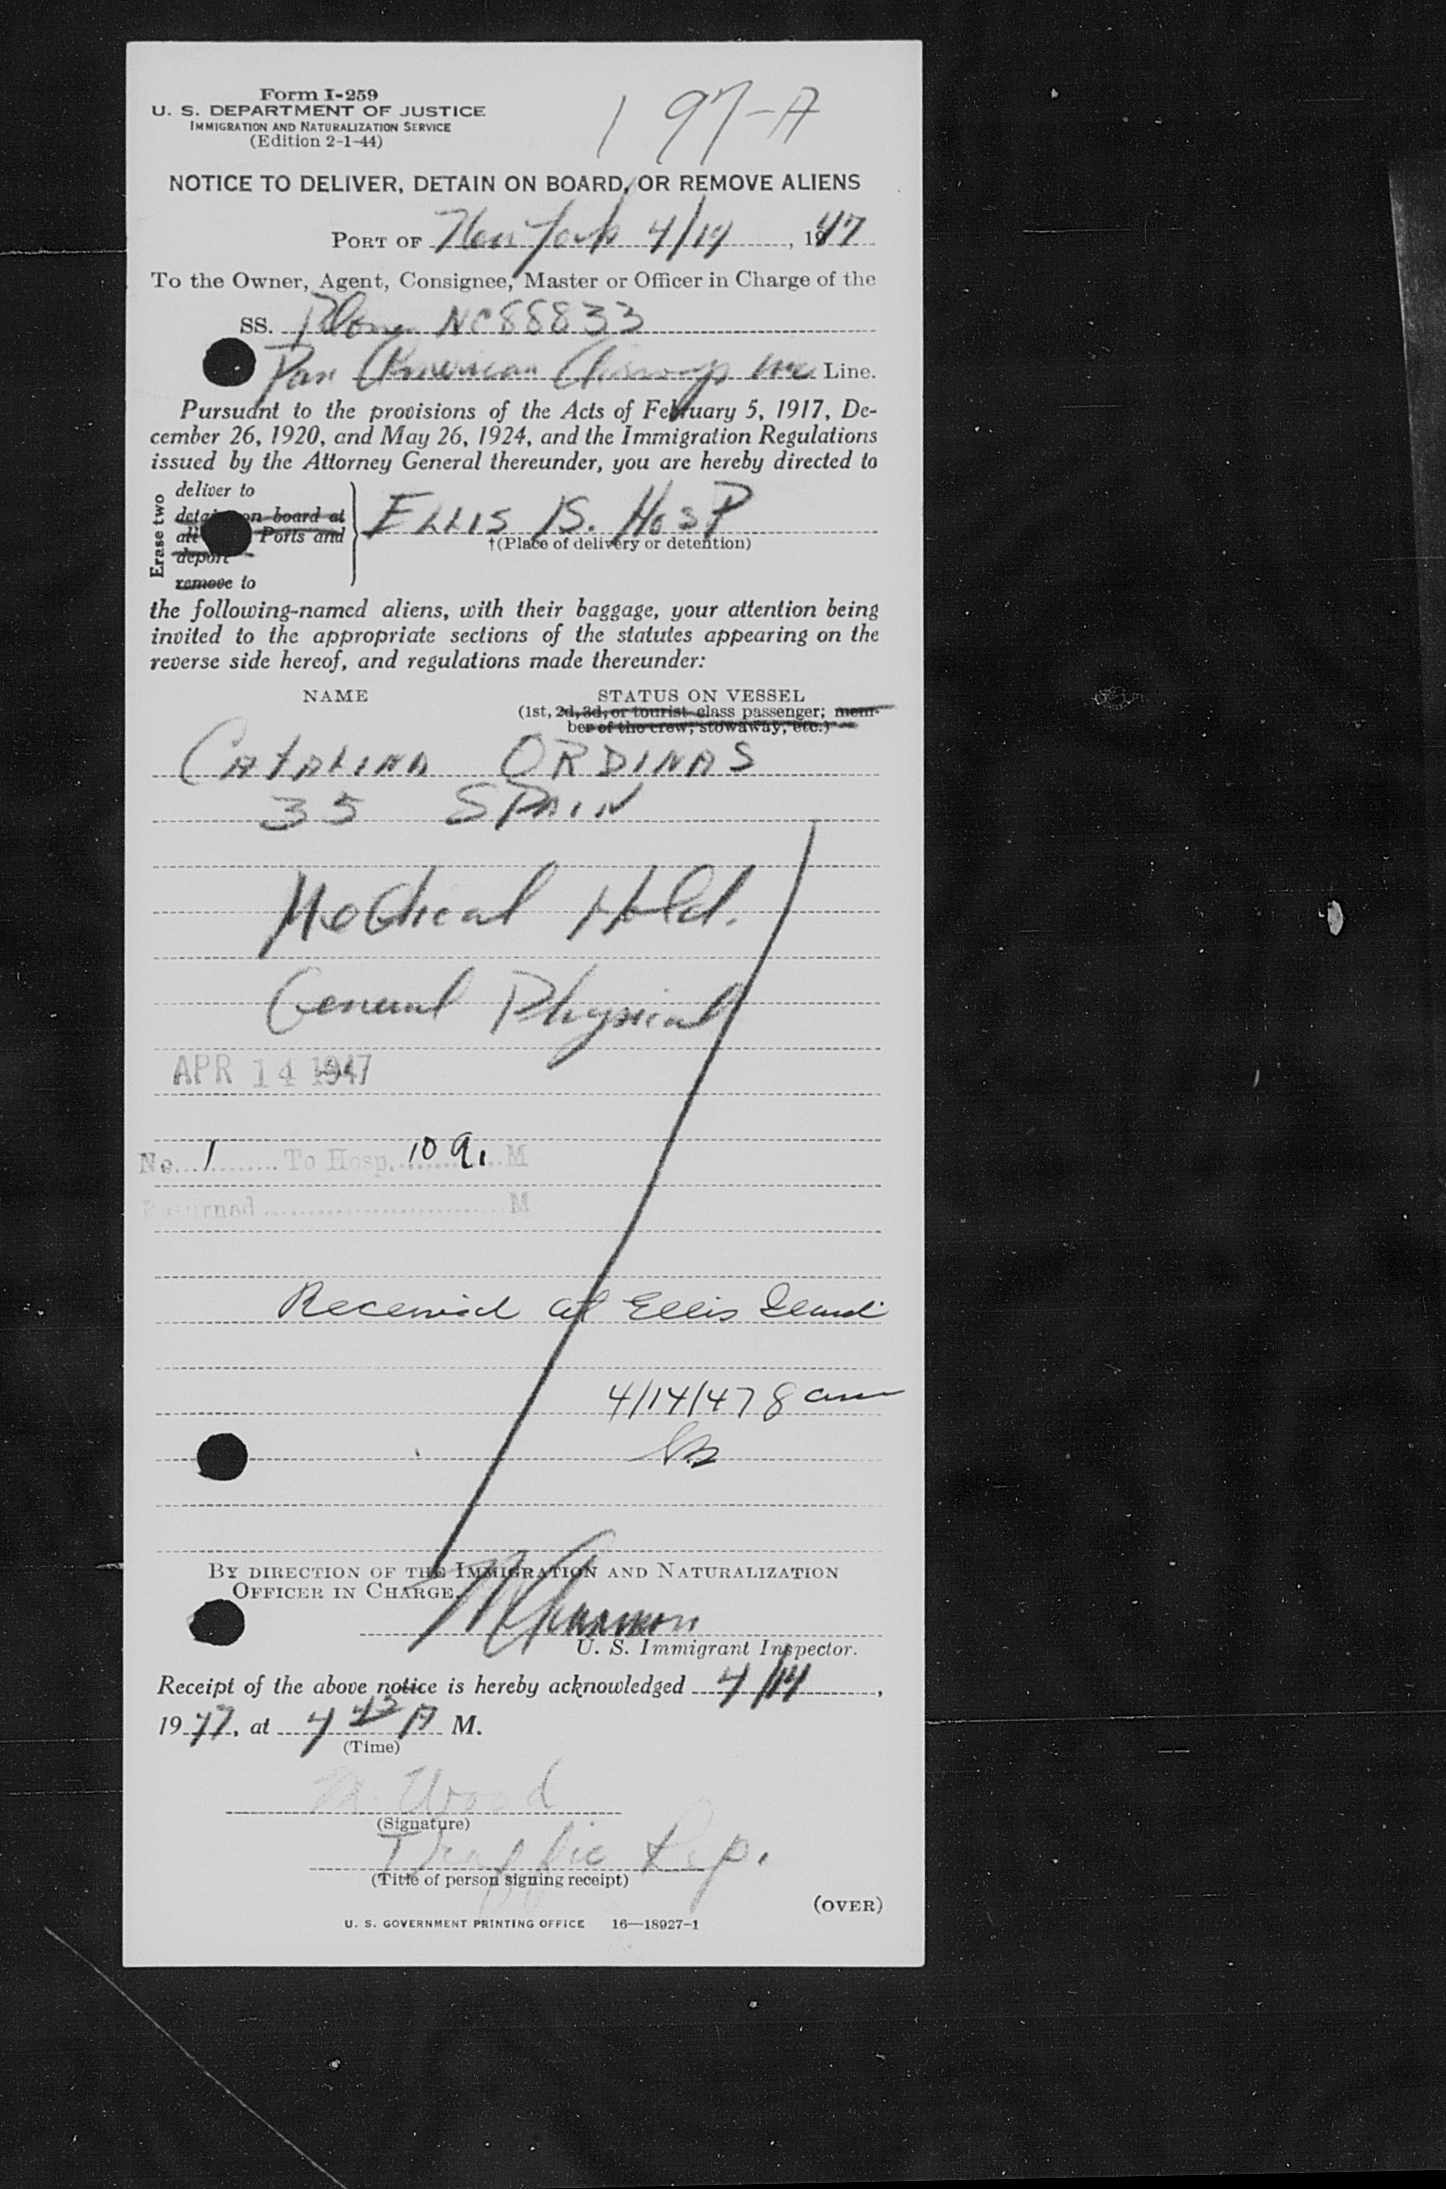 Form I-259
U. S. DEPARTMENT OF JUSTICE
IMMIGRATION AND NATURALIZATION SERVICE
(Edition 2-1-44)
1 97-A
NOTICE TO DELIVER, DETAIN ON BOARD, OR REMOVE ALIENS
PORT OF New York 4/14, 1947
To the Owner, Agent, Consignee, Master or Officer in Charge of the
SS. Plane NC88833
Pan American Airways Inc Line.
Pursuant to the provisions of the Acts of February 5, 1917, De-
cember 26, 1920, and May 26, 1924, and the Immigration Regulations
issued by the Attorney General thereunder, you are hereby directed to
Erase two
deliver to
detain on board at
all Ports and
deport
remove to
ELLIS IS. HOSP
†(Place of delivery or detention)
the following-named aliens, with their baggage, your attention being
invited to the appropriate sections of the statutes appearing on the
reverse side hereof, and regulations made thereunder:
NAME STATUS ON VESSEL
(1st, 2d, 3d, or tourist class passenger; mem-
ber of the crew, stowaway, etc.)
CATALINA ORDINAS
35 SPAIN
Medical Hold.
General Physical
APR 14 1947
No. 1 To Hosp. 10 a. M
Returned M
Received at Ellis Island
4/14/47 8 am
BY DIRECTION OF THE IMMIGRATION AND NATURALIZATION
OFFICER IN CHARGE.
U. S. Immigrant Inspector.
Receipt of the above notice is hereby acknowledged 4/14,
1947, at 4 43 A M.
(Time)
M. Wood
(Signature)
Traffic Rep.
(Title of person signing receipt)
(OVER)
U. S. GOVERNMENT PRINTING OFFICE 16—18927-1